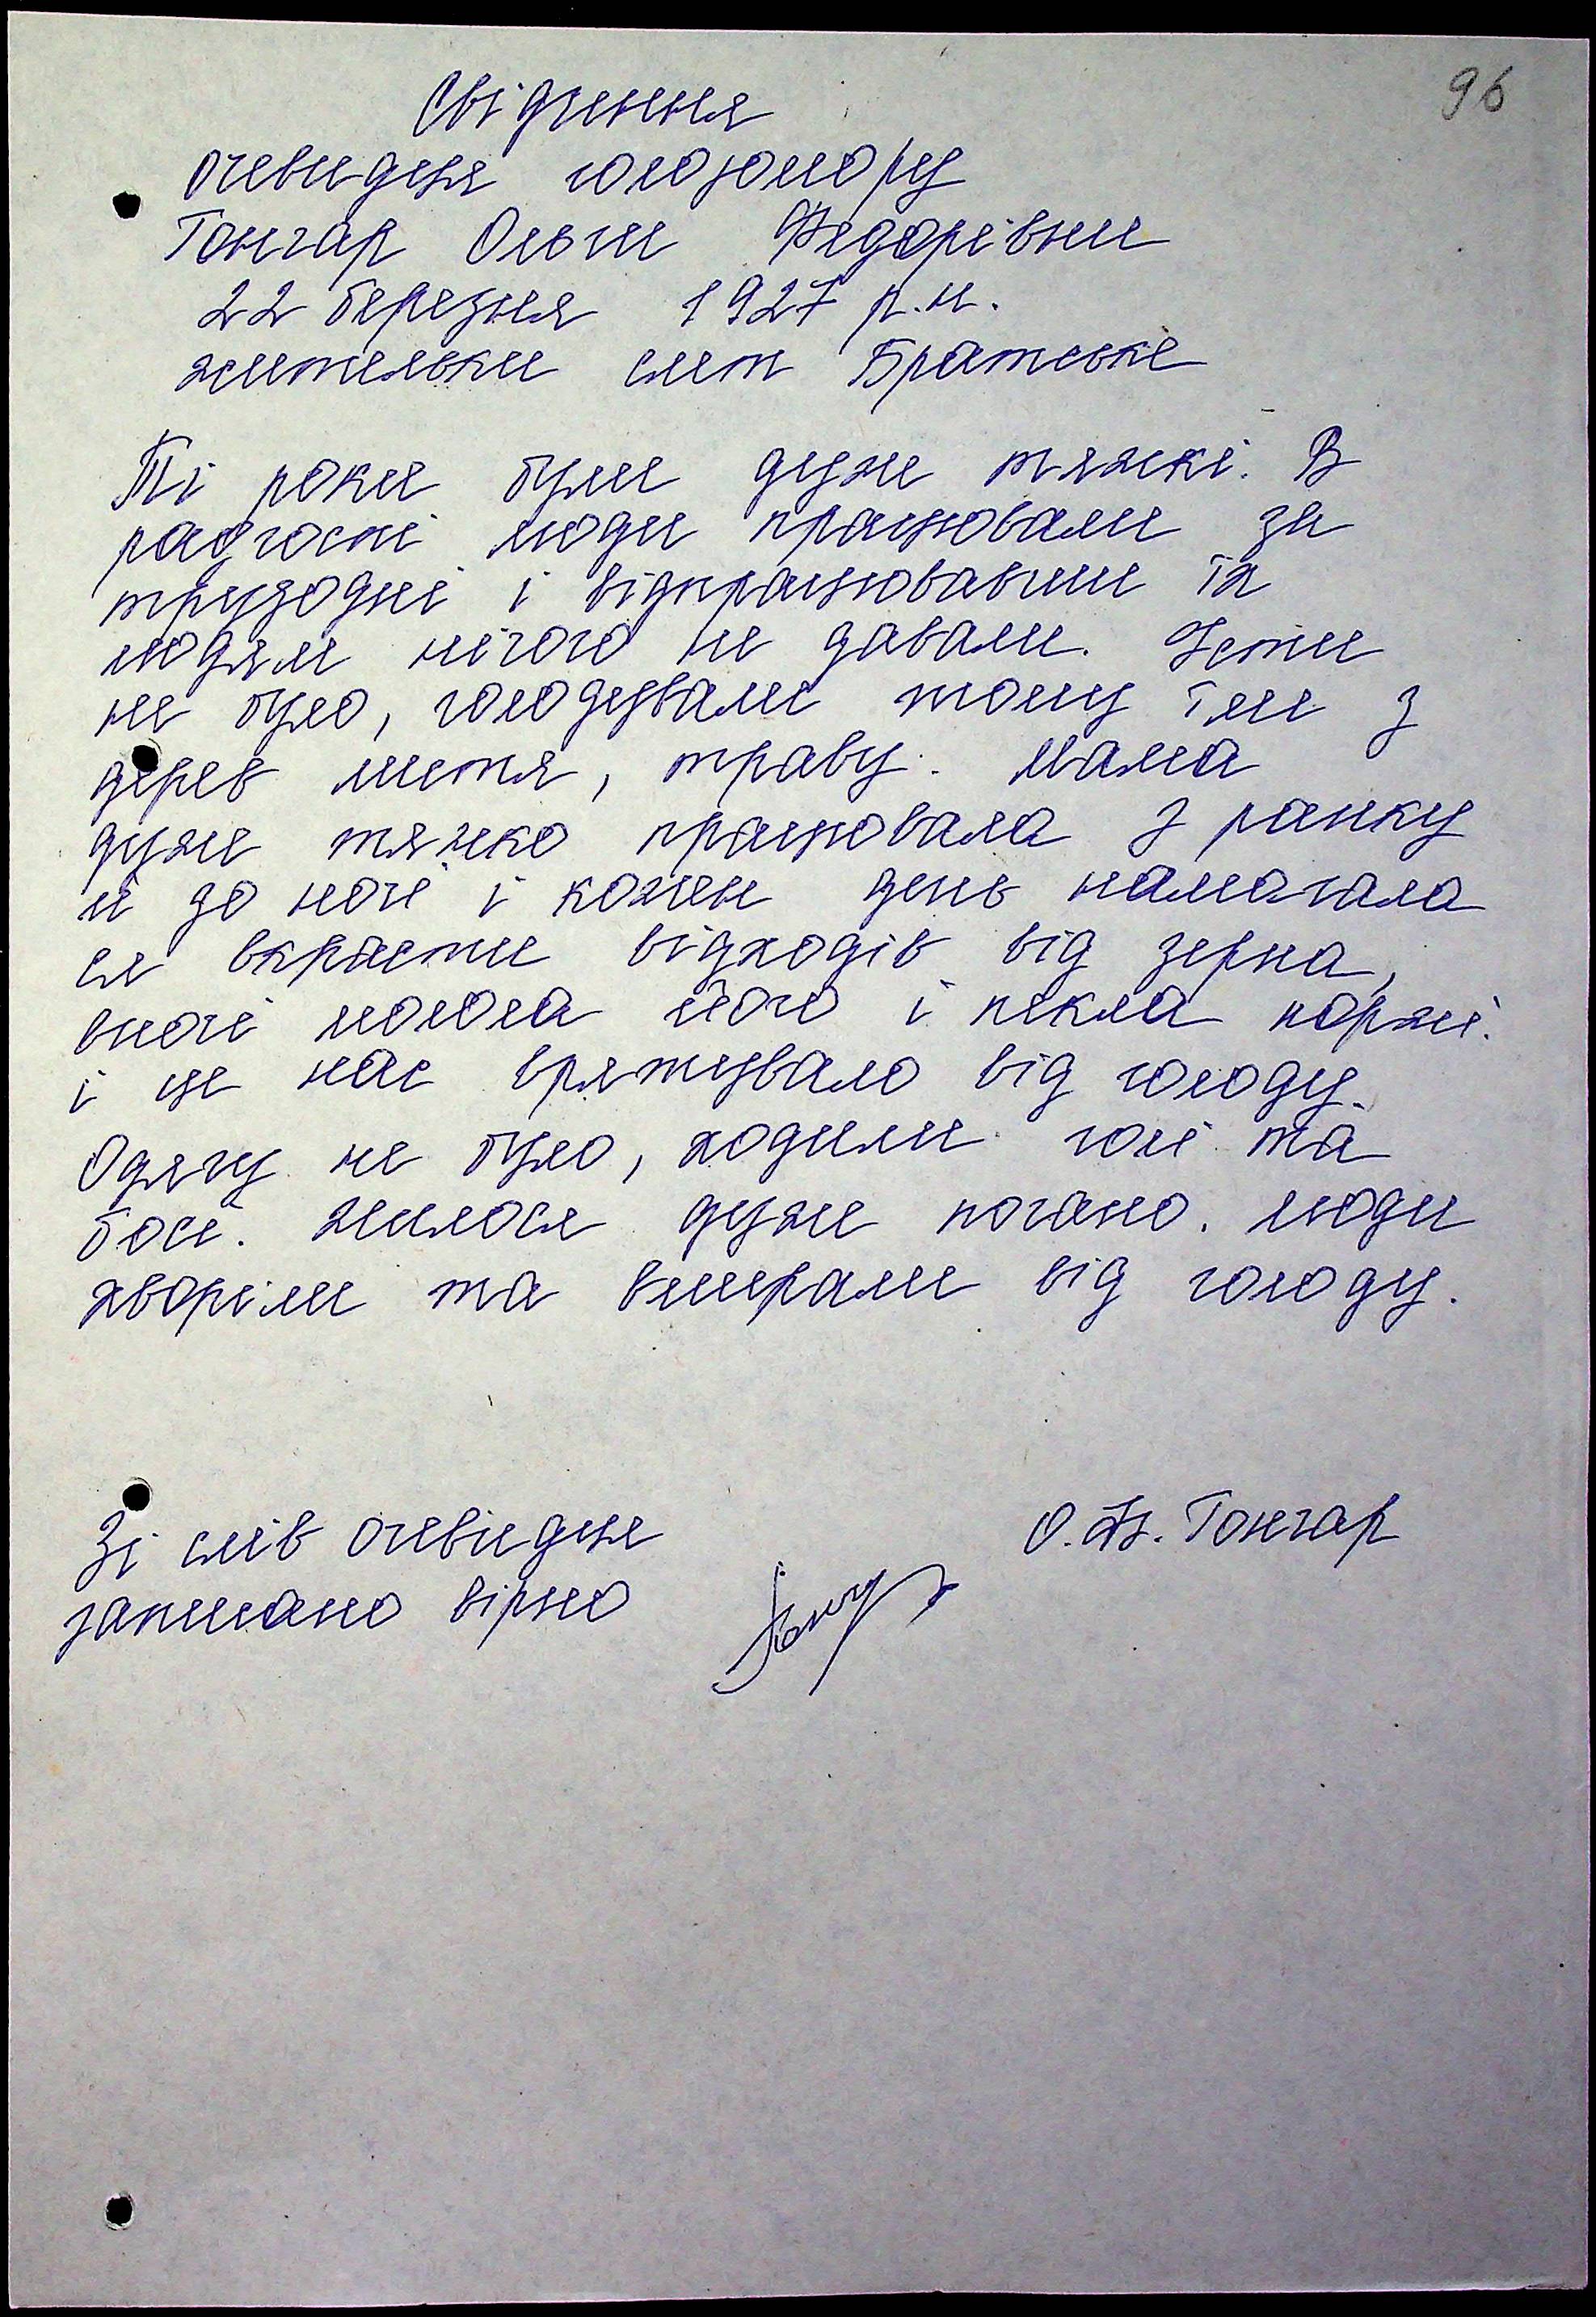 96
Свідчення
очевидця голодомору
Гончар Ольги Федорівни
22 березня 1927 р.н.
жительки смт Братське
Ті роки були дуже тяжкі. В
радгоспі люди працювали за
трудодні і відпрацювавши їх
людям нічого не давали. Їсти
не було, голодували тому їли з
дерев листя, траву. Мама
дуже тяжко працювала з ранку
й до ночі і кожен день намагала
ся вкрасти відходів від зерна,
вночі молола його і пекла коржі.
і це нас врятувало від голоду.
Одягу не було, ходили голі та
босі. Жилося дуже погано. Люди
хворіли та вмирали від голоду.
Зі слів очевидця
записано вірно
О.Ф. Гончар